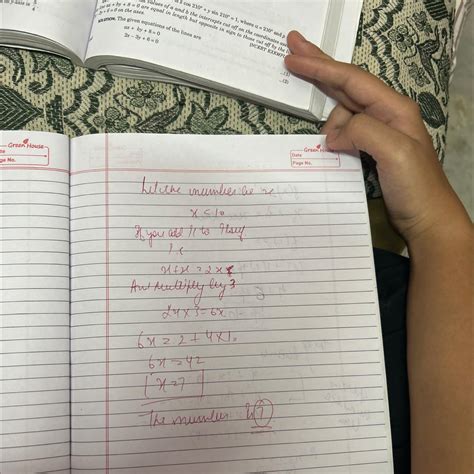 x cos 210° + y sin 210° = 1, where α = 210° and p
values of a and b the intercepts cut off on the coordinate axes
ax + by + 8 = 0 are equal in length but opposite in sign to those cut off by the
on the axes.
[NCERT EXEMPLAR
The given equations of the lines are
ax + by + 8 = 0
2x - 3y + 6 = 0
...(1)
...(2)
Green House
Page No.
Green House
Date
Page No.
Let the number be x
x < 10
If you add it to itself
x+x = 2x
And multiply by 3
2x × 3 = 6x
6x = 2 + 4 × 10
6x = 42
x = 7
The number is 7